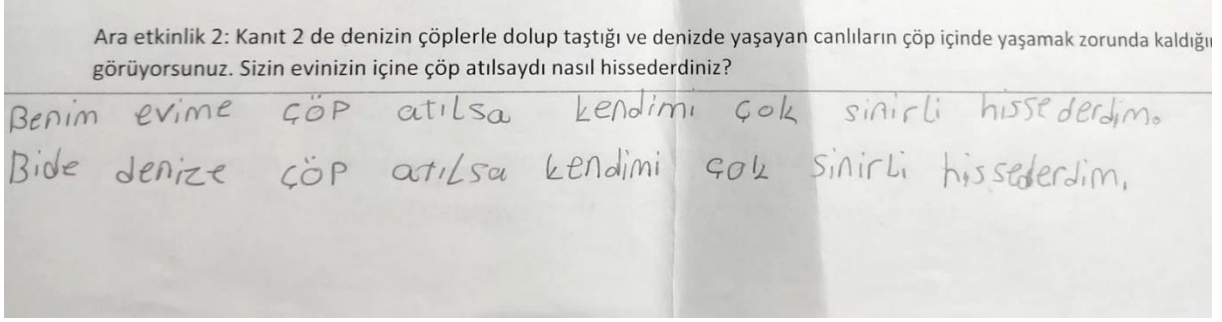 Ara etkinlik 2: Kanıt 2 de denizin çöplerle dolup taştığı ve denizde yaşayan canlıların çöp içinde yaşamak zorunda
görüyorsunuz. Sizin evinizin içine çöp atılsaydı nasıl hissederdiniz?
Benim evime çöp atılsa kendimi çok sinirli hissederdim.
Bide denize çöp atılsa kendimi çok sinirli hissederdim.